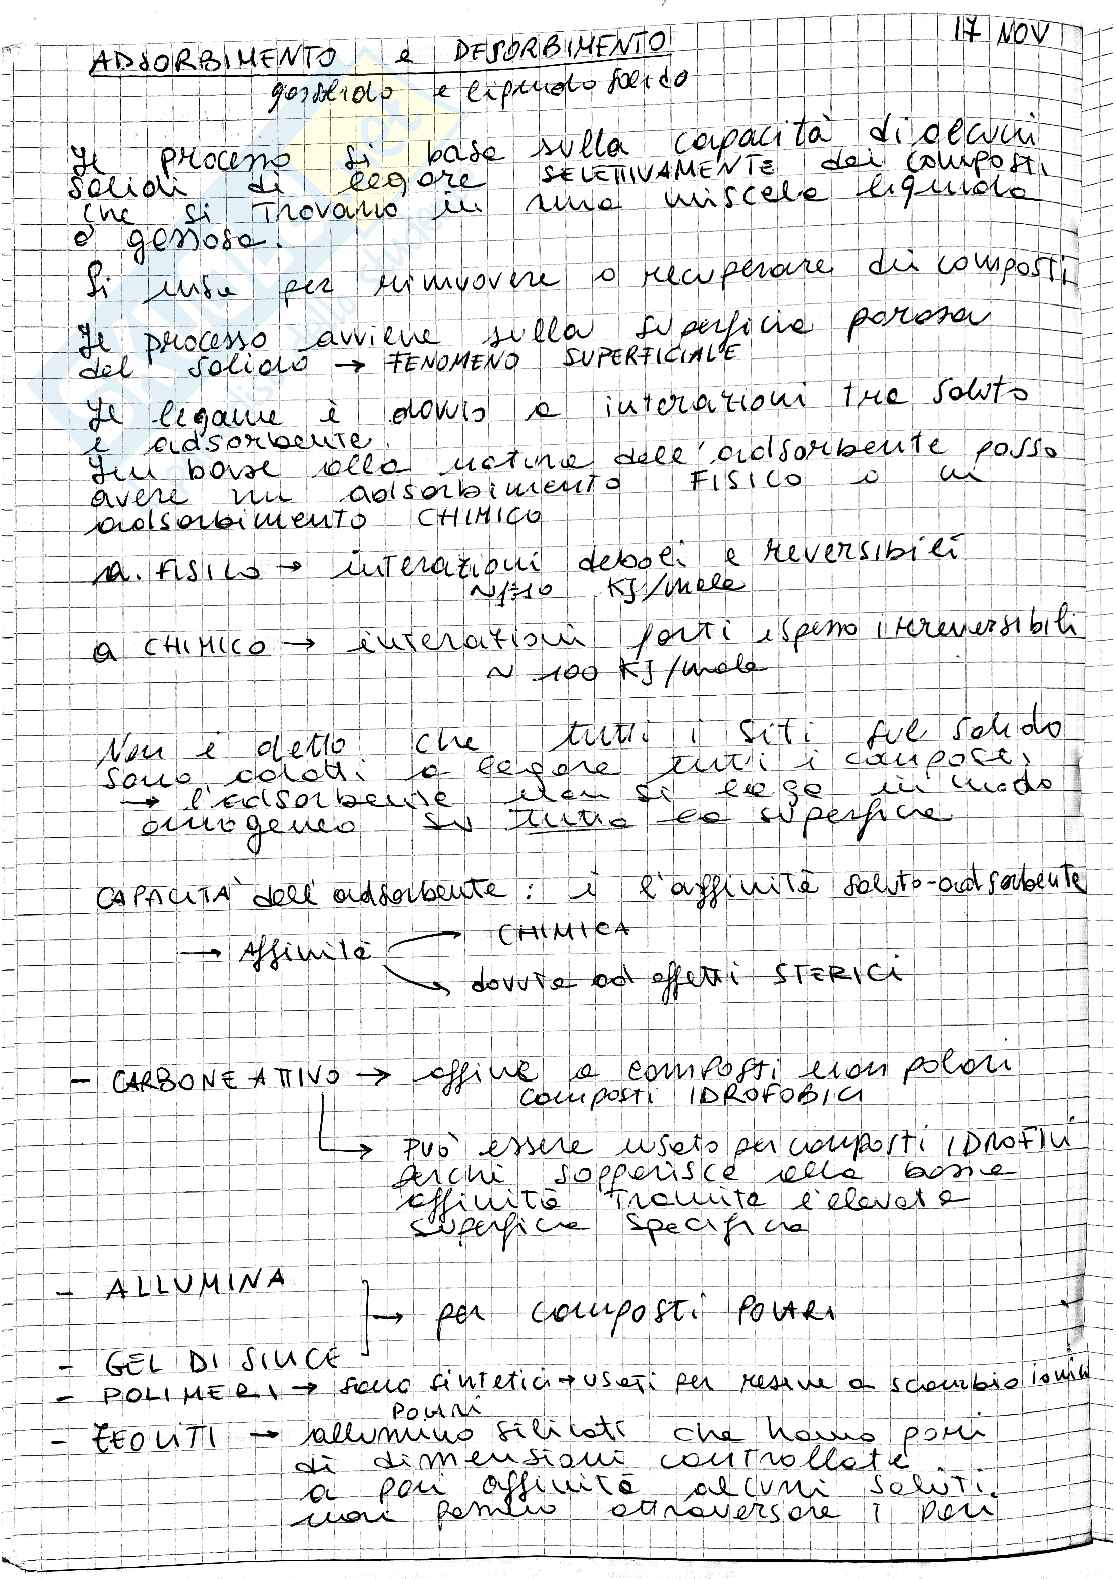 17 NOV
ADSORBIMENTO e DESORBIMENTO
gassolido e liquido solido
Il processo si basa sulla capacità di alcuni
solidi di legare SELETTIVAMENTE dei composti
che si trovano in una miscela liquida
o gassosa.
Si usa per rimuovere o recuperare dei composti
Il processo avviene sulla superficie porosa
del solido → FENOMENO SUPERFICIALE
Il legame è dovuto a interazioni tra soluto
e adsorbente.
In base alla natura dell'adsorbente posso
avere un adsorbimento FISICO o un
adsorbimento CHIMICO
a. FISICO → interazioni deboli e reversibili
~1÷10 KJ/mole
a CHIMICO → interazioni forti e spesso irreversibili
~ 100 KJ/mole
Non è detto che tutti i siti sul solido
sono adatti a legare tutti i composti
→ l'adsorbente non si lega in modo
omogeneo su tutta la superficie
CAPACITÀ dell'adsorbente: è l'affinità soluto-adsorbente
→ Affinità CHIMICA
dovuta ad effetti STERICI
- CARBONE ATTIVO → affine a composti non polari
composti IDROFOBICI
→ PUÒ essere usato per composti IDROFILI
perché sopperisce alla bassa
affinità tramite l'elevata
superficie specifica
- ALLUMINA
→ per composti POLARI
- GEL DI SILICE
- POLIMERI → sono sintetici → usati per resine a scambio ionico
POLARI
- ZEOLITI → allumino silicati che hanno pori
di dimensioni controllate.
a pari affinità alcuni soluti
non passano attraverso i pori